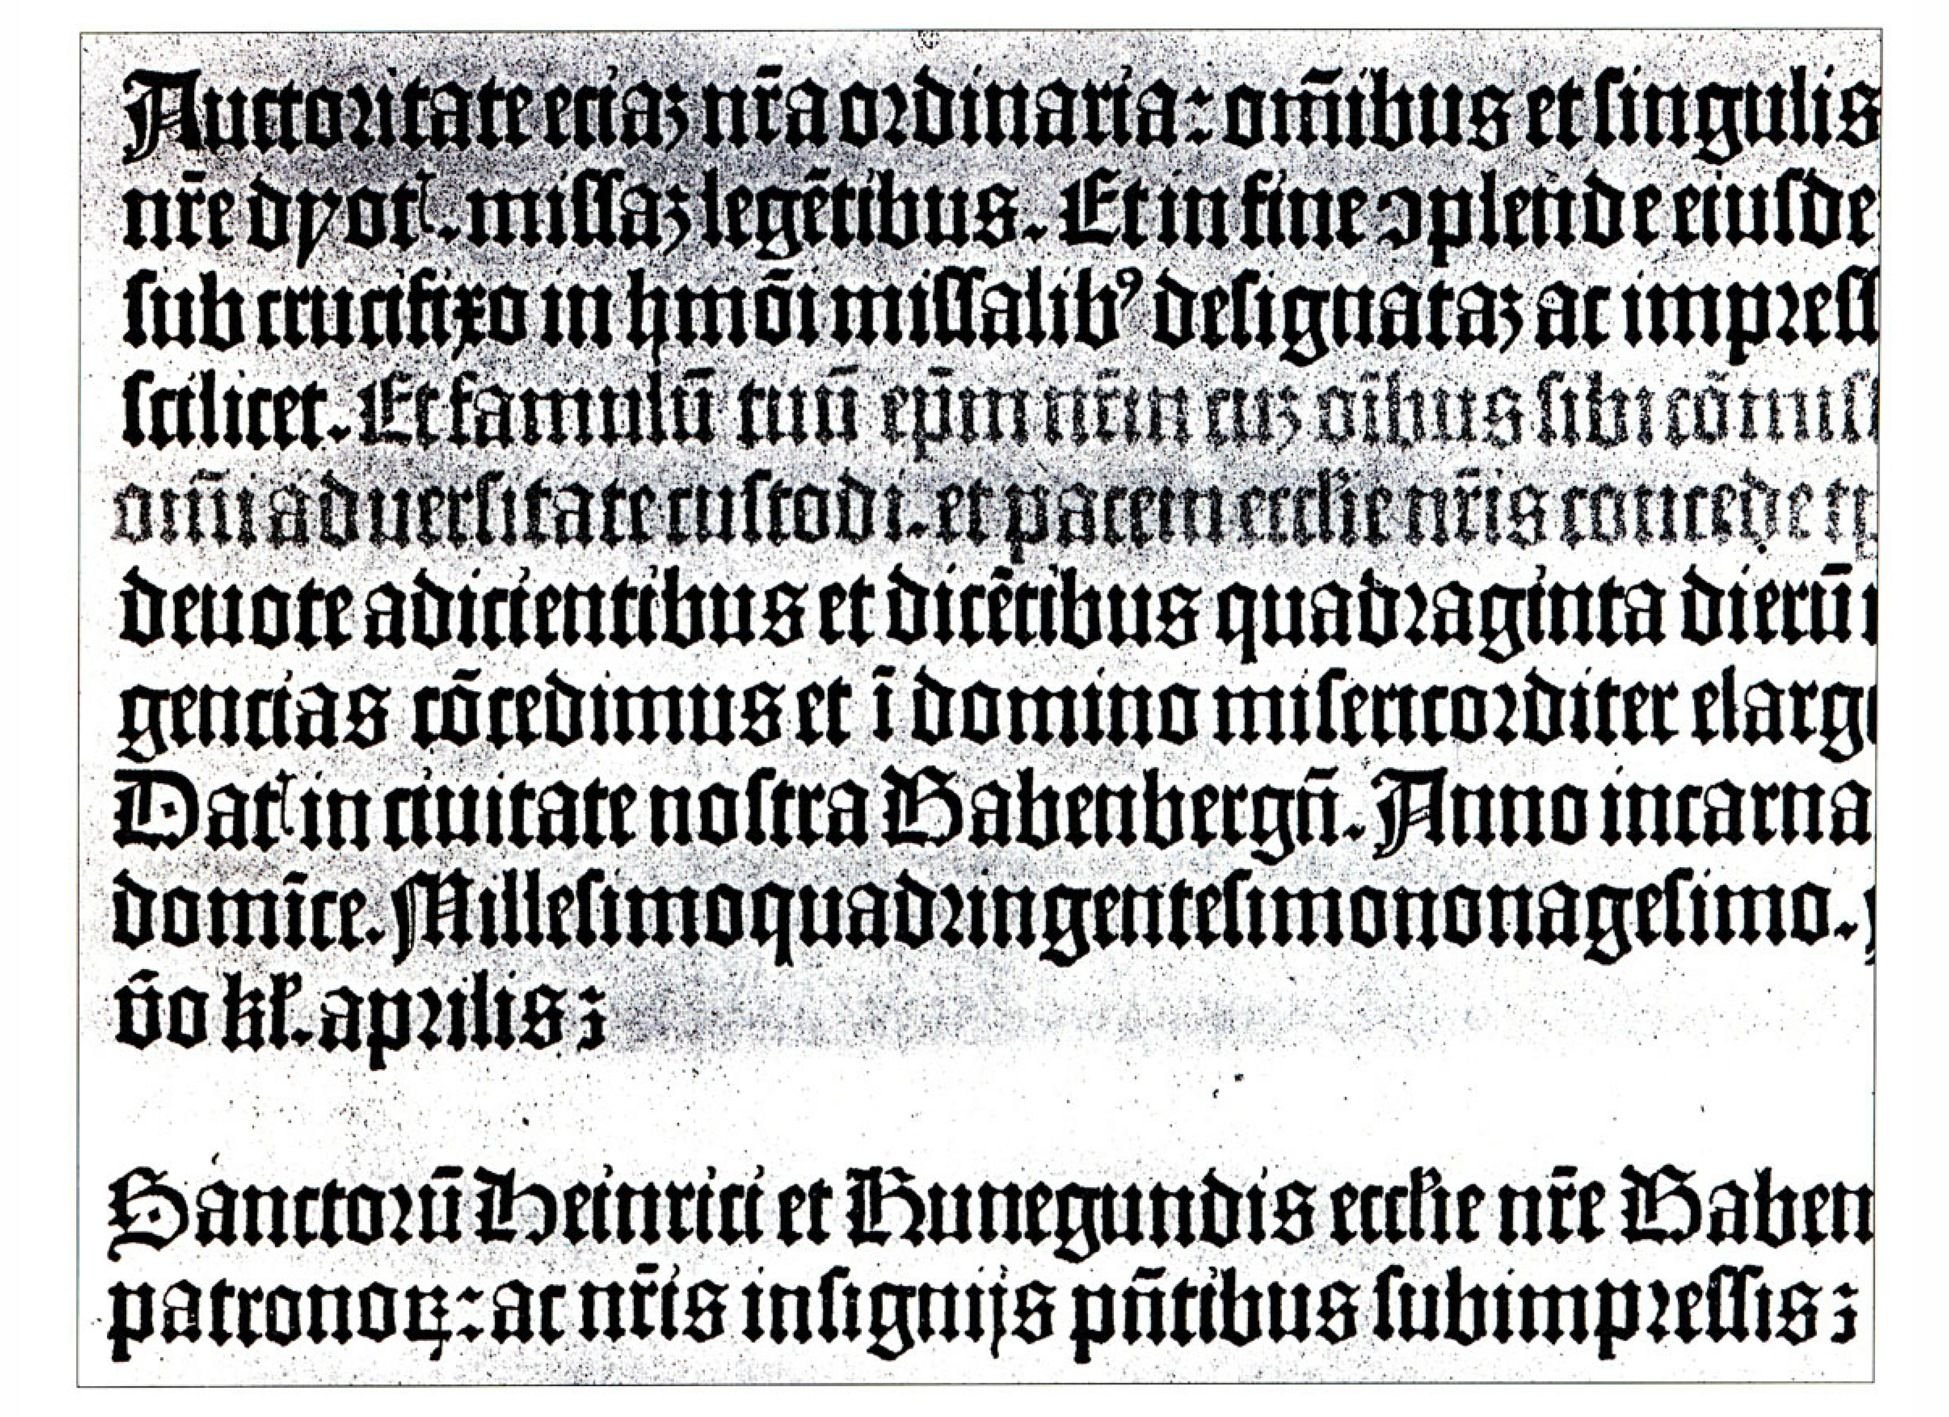 Auctoritate eciaꝫ nr̄a ordinaria: om̄ibus et singulis
nr̄e dyoc̄. missaꝫ legētibus. Et in fine ↄplende eiusde
sub crucifixo in hmōi missalibꝰ designataꝫ ac impress
scilicet. Et famulū tuū ep̄m nr̄m cuꝫ oībus sibi cōmiss
om̄i aduersitate custodi. et pacem eccl̄ie nr̄is concede
deuote adicientibus et dicētibus quadraginta dierū
gencias cōcedimus et ī domino misericorditer elarg
Datꝭ in ciuitate nostra Babenbergn̄. Anno incarna
domīce. Millesimoquadringentesimononagesimo.
v̄o kl̄. aprilis:
Sanctorū Heinrici et Kunegundis eccl̄ie nr̄e Baben
patronoꝝ: ac nr̄is insignijs pn̄tibus subimpressis: